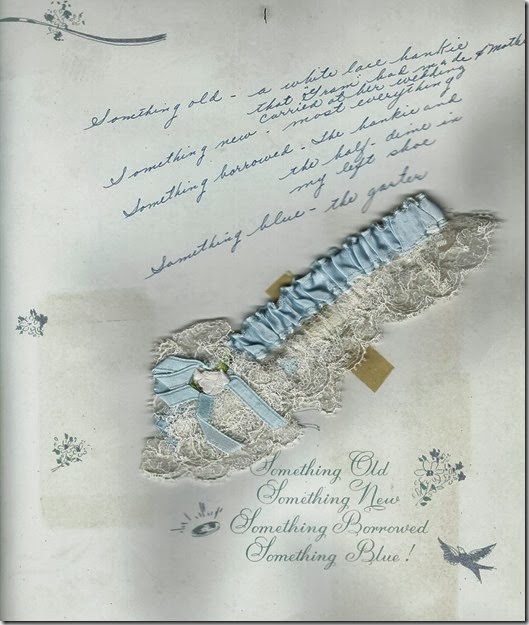 Something old - a white lace hankie
that "Gram" had made & Mother
carried at her wedding
Something new - most everything
Something borrowed - The hankie and
the half-dime in
my left shoe
Something blue - the garter
Something Old
Something New
Something Borrowed
Something Blue!